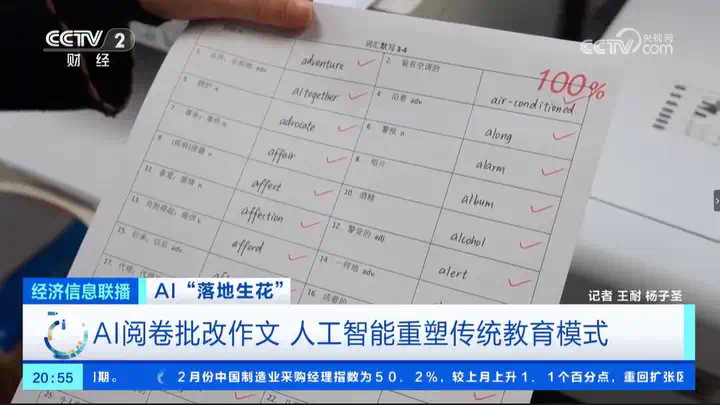 CCTV 2
财经
央视网
CCTV.com
词汇默写 3-4
100%
adventure
2. 装有空调的
air-conditioned
altogether
4. 沿着 adv.
along
advocate
6. 警报 n
alarm
affair
8. 唱片
album
affect
10. 酒精
alcohol
affection
12. 警觉的 adj
alert
afford
14. 一样地 adv.
15. 后来，以后 adv.
16. 活着的
经济信息联播
AI“落地生花”
记者 王耐 杨子圣
AI阅卷批改作文 人工智能重塑传统教育模式
20:55
期。
2月份中国制造业采购经理指数为50.2%，较上月上升1.1个百分点，重回扩张区